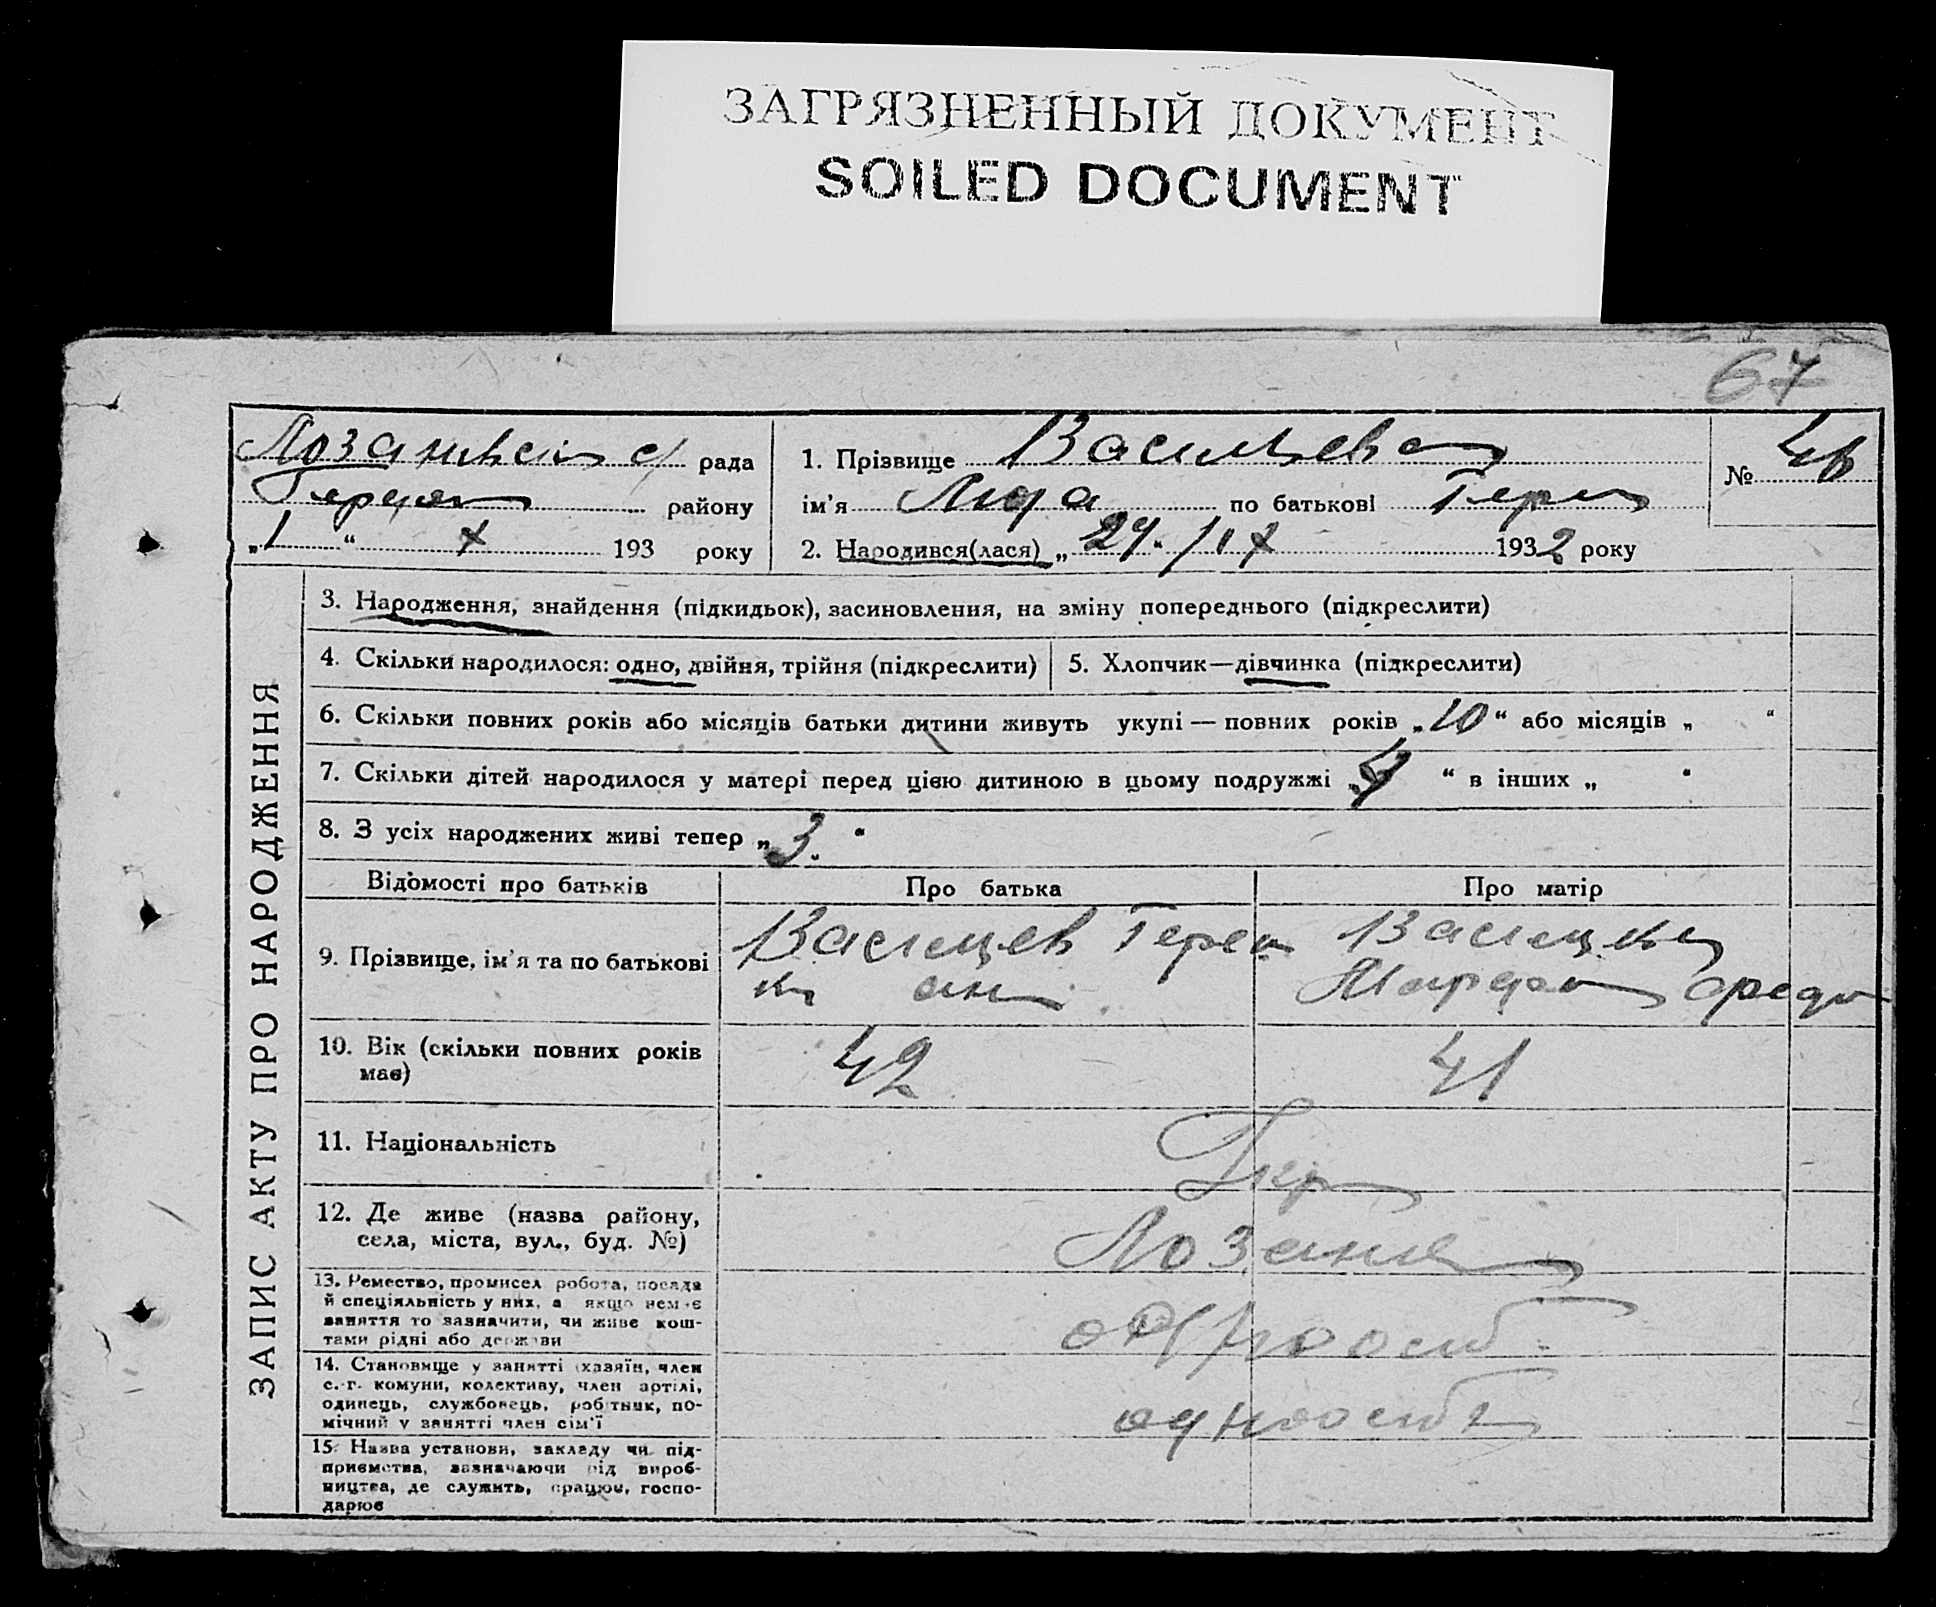 ЗАГРЯЗНЕННЫЙ ДОКУМЕНТ
SOILED DOCUMENT
67
рада
району
„1“ X 193 року
1. Прізвище Васильева
№ 46
ім'я Лида по батькові
2. Народився(лася) „29“ / IX 1932 року
ЗАПИС АКТУ ПРО НАРОДЖЕННЯ
3. Народження, знайдення (підкидьок), засиновлення, на зміну попереднього (підкреслити)
4. Скільки народилося: одно, двійня, трійня (підкреслити)
5. Хлопчик—дівчинка (підкреслити)
6. Скільки повних років або місяців батьки дитини живуть укупі — повних років „10“ або місяців „ “
7. Скільки дітей народилося у матері перед цією дитиною в цьому подружжі „4 “ в інших „ “
8. З усіх народжених живі тепер „3“
Відомості про батьків
Про батька
Про матір
9. Прізвище, ім'я та по батькові
10. Вік (скільки повних років
має)
42
41
11. Національність
12. Де живе (назва району,
села, міста, вул., буд. №)
13. Ремество, промисел робота, посада
й спеціяльність у них, а якщо немає
заняття то зазначити, чи живе кош-
тами рідні або держави
14. Становище у занятті (хазяїн, член
с.-г. комуни, колективу, член артілі,
одинець, службовець, робітник, по-
мічний у занятті член сім'ї
15. Назва установи, закладу чи під-
приємства, зазначаючи рід вироб-
ництва, де служить, працює, госпо-
дарює